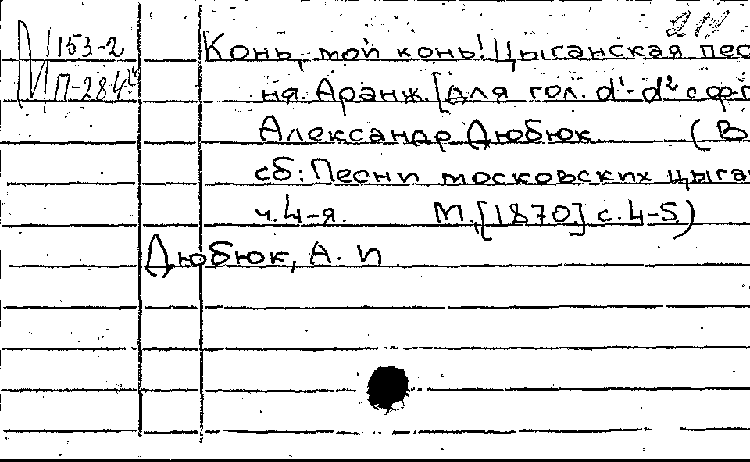 153-2
П-284
Конь, мой конь! Цыганская пес
ня. Аранж. [для гол. d¹-d² с ф-п
Александр Дюбюк (В
сб: Песни московских цыга
ч.4-я. М,[1870] с.4-5)
Дюбюк, А. И